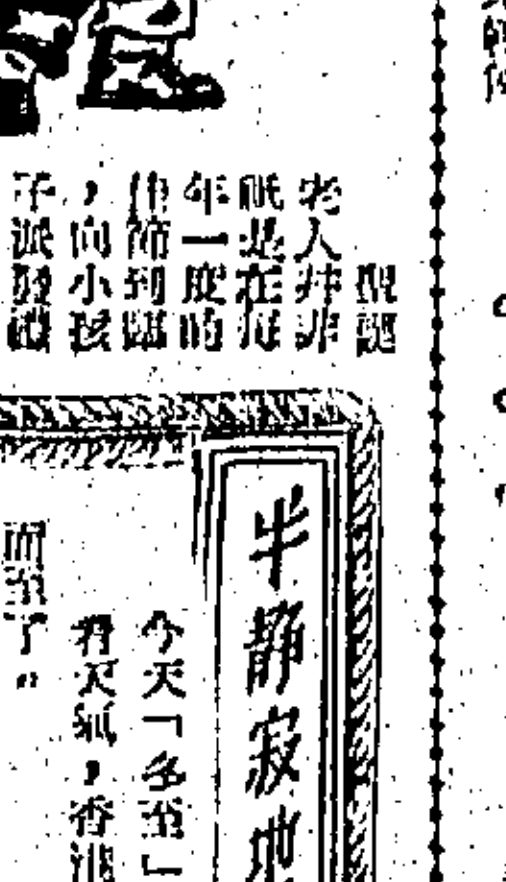 聖誕
老人并非
祇是在每
年一度的
佳節到臨
，向小孩
子派發禮
半靜寂地
今天「冬至」
看天氣，香港
而至了。